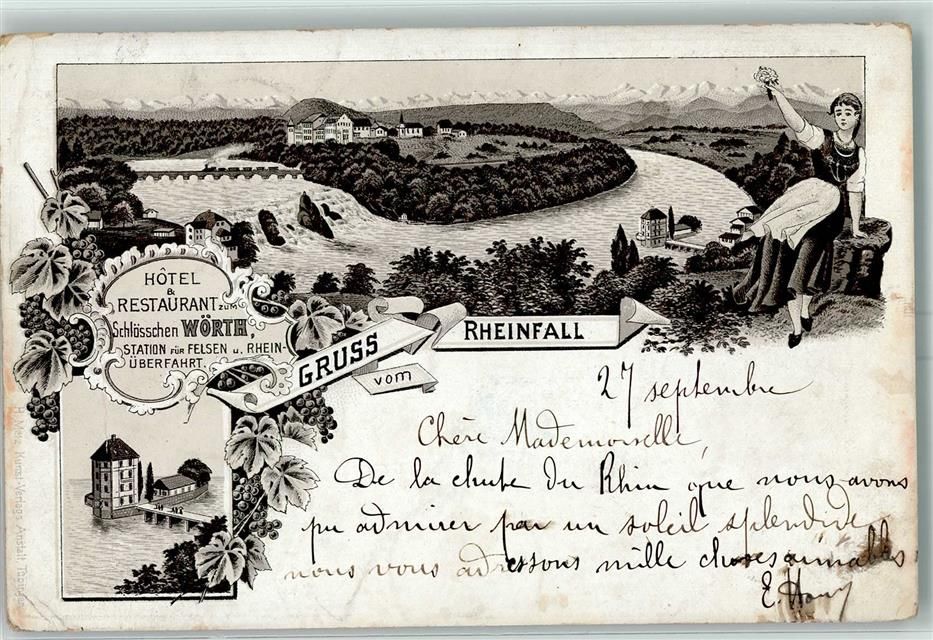 HÔTEL
&
RESTAURANT ZUM
Schlösschen WÖRTH
STATION FÜR FELSEN u. RHEIN-
ÜBERFAHRT.
GRUSS
vom
RHEINFALL
27 septembre
Chère Mademoiselle,
De la chute du Rhin que nous avons
pu admirer par un soleil splendide
nous vous adressons mille choses aimables
E.
Kunst-Verlags-Anstalt